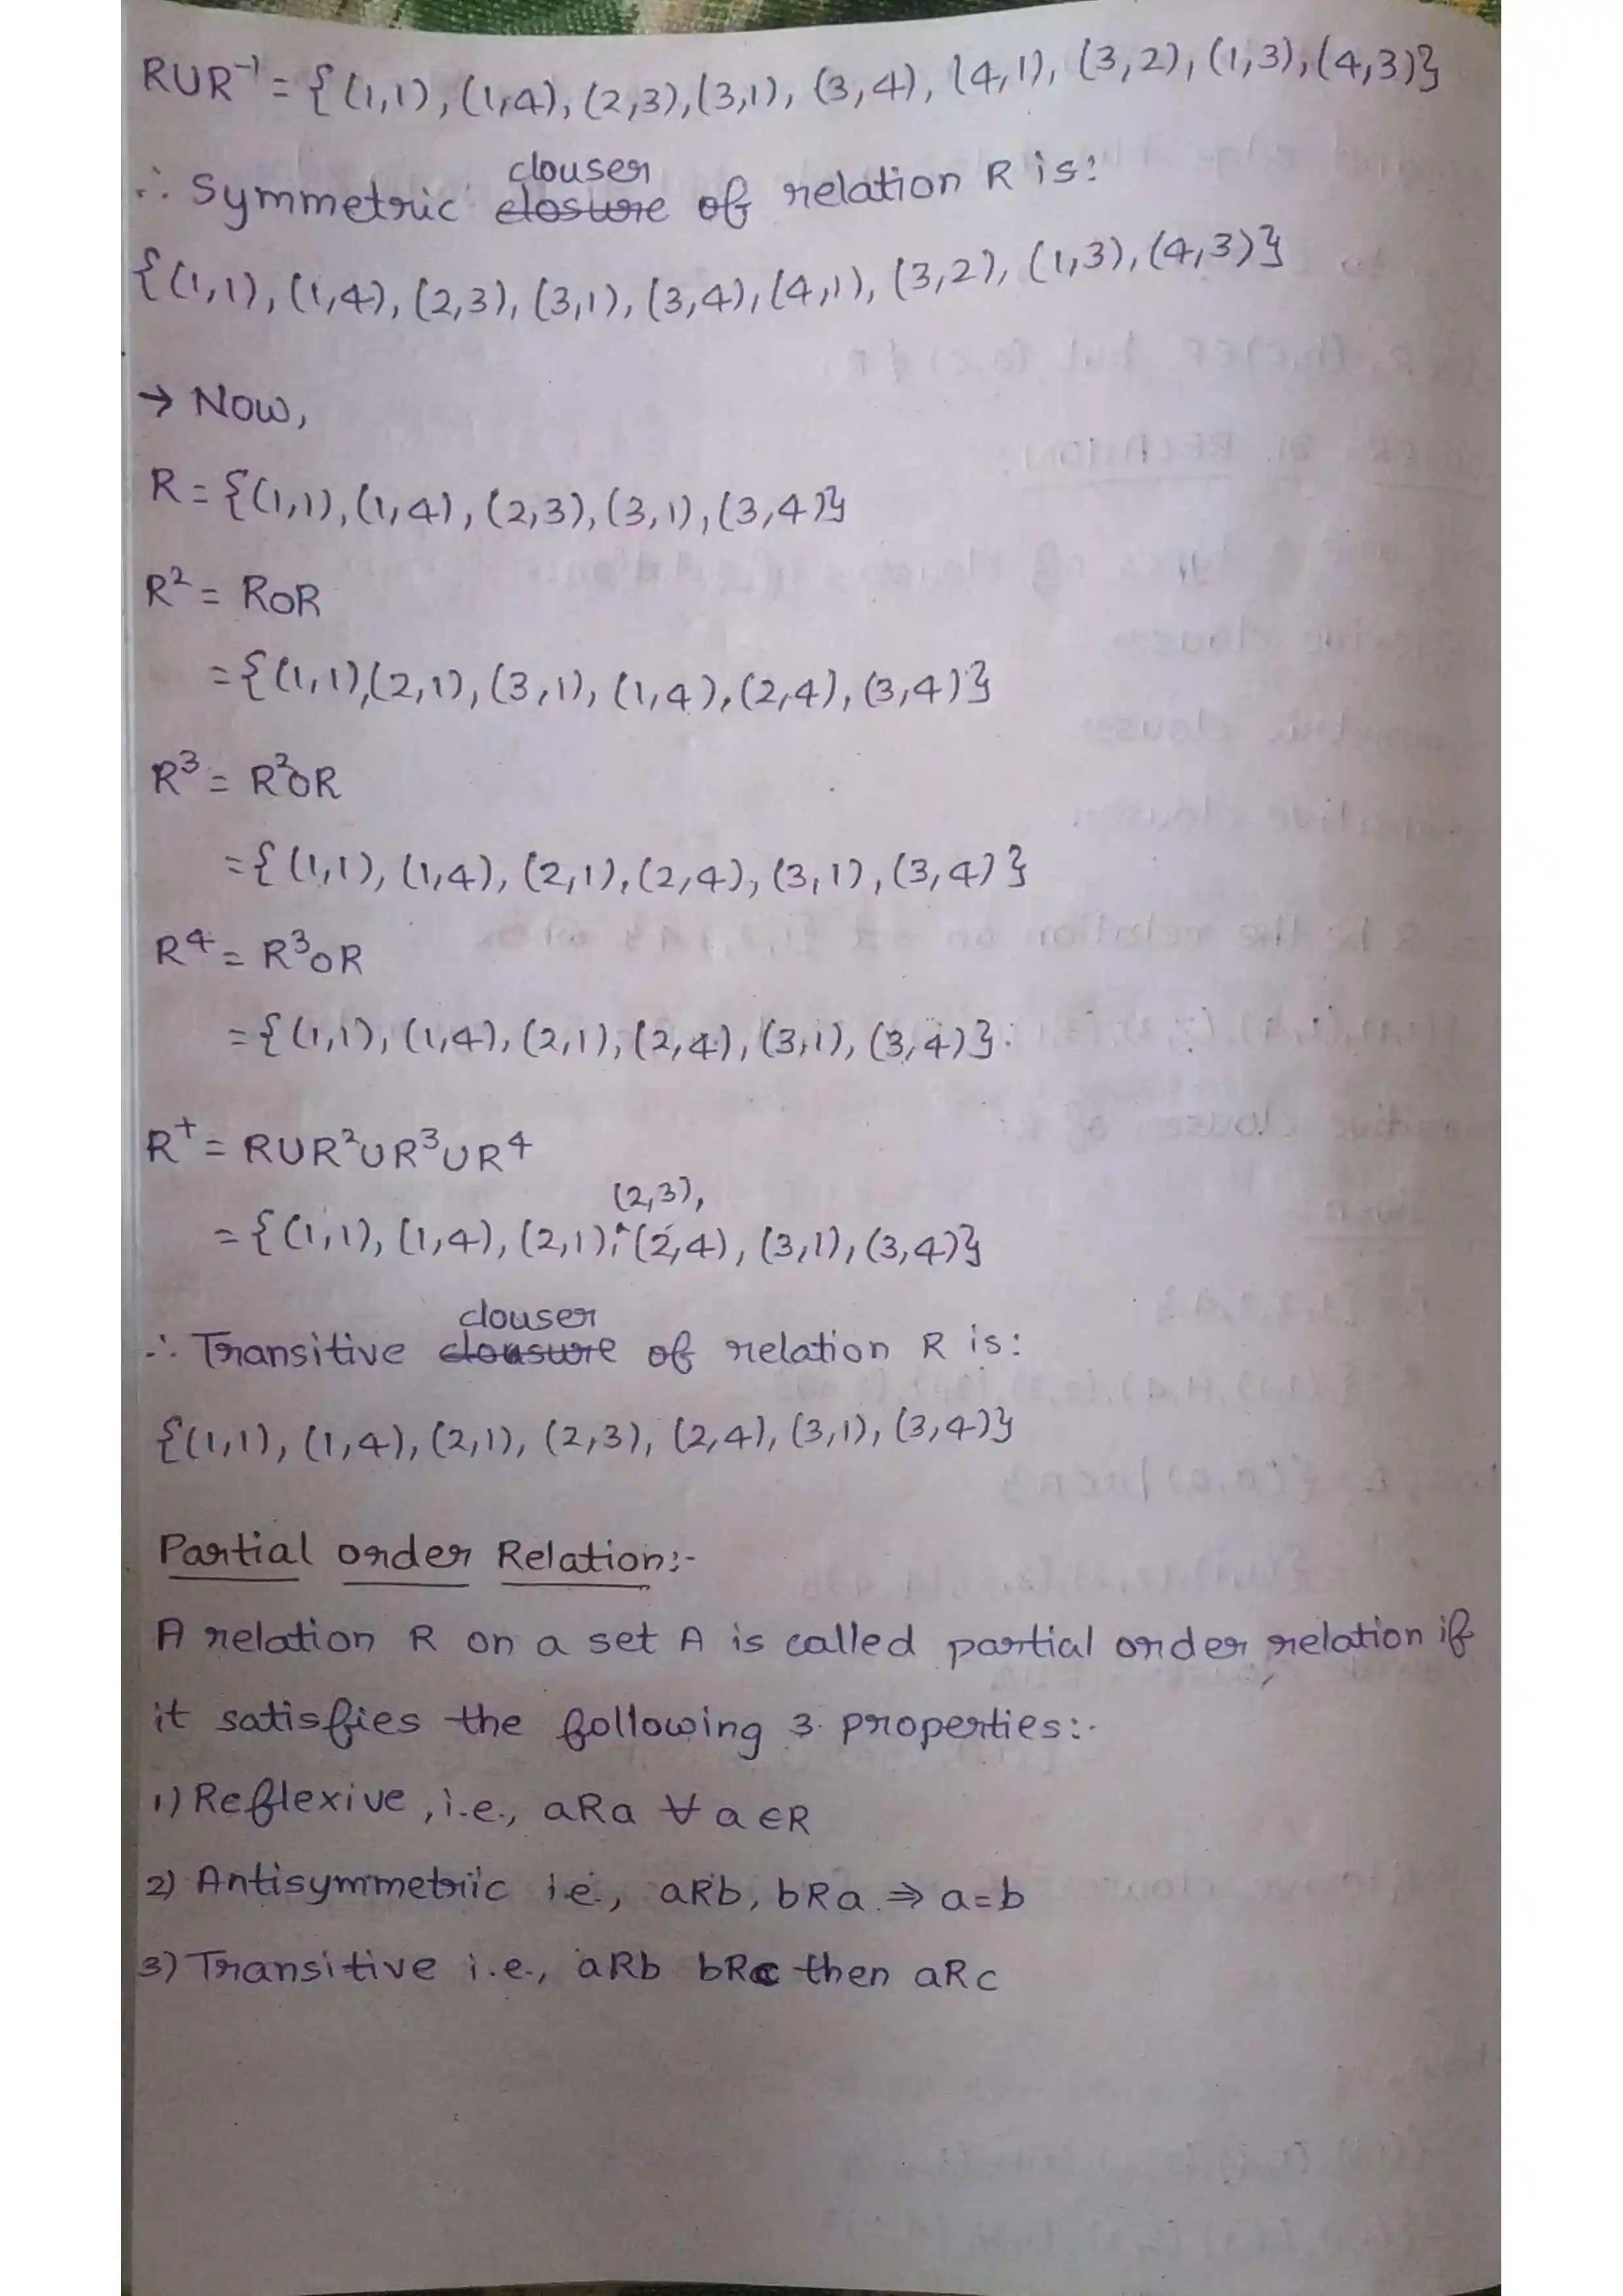 R∪R⁻¹ = {(1,1), (1,4), (2,3), (3,1), (3,4), (4,1), (3,2), (1,3), (4,3)}
clouser
∴ Symmetric closure of relation R is:
{(1,1), (1,4), (2,3), (3,1), (3,4), (4,1), (3,2), (1,3), (4,3)}
→ Now,
R = {(1,1), (1,4), (2,3), (3,1), (3,4)}
R² = ROR
= {(1,1), (2,1), (3,1), (1,4), (2,4), (3,4)}
R³ = R²OR
= {(1,1), (1,4), (2,1), (2,4), (3,1), (3,4)}
R⁴ = R³OR
= {(1,1), (1,4), (2,1), (2,4), (3,1), (3,4)}
R⁺ = R∪R²∪R³∪R⁴
(2,3),
= {(1,1), (1,4), (2,1), (2,4), (3,1), (3,4)}
clouser
∴ Transitive clousure of relation R is:
{(1,1), (1,4), (2,1), (2,3), (2,4), (3,1), (3,4)}
Partial order Relation:-
A relation R on a set A is called partial order relation if
it satisfies the following 3 properties:-
1) Reflexive, i.e., aRa ∀ a∈R
2) Antisymmetric i.e., aRb, bRa ⇒ a=b
3) Transitive i.e., aRb bRc then aRc